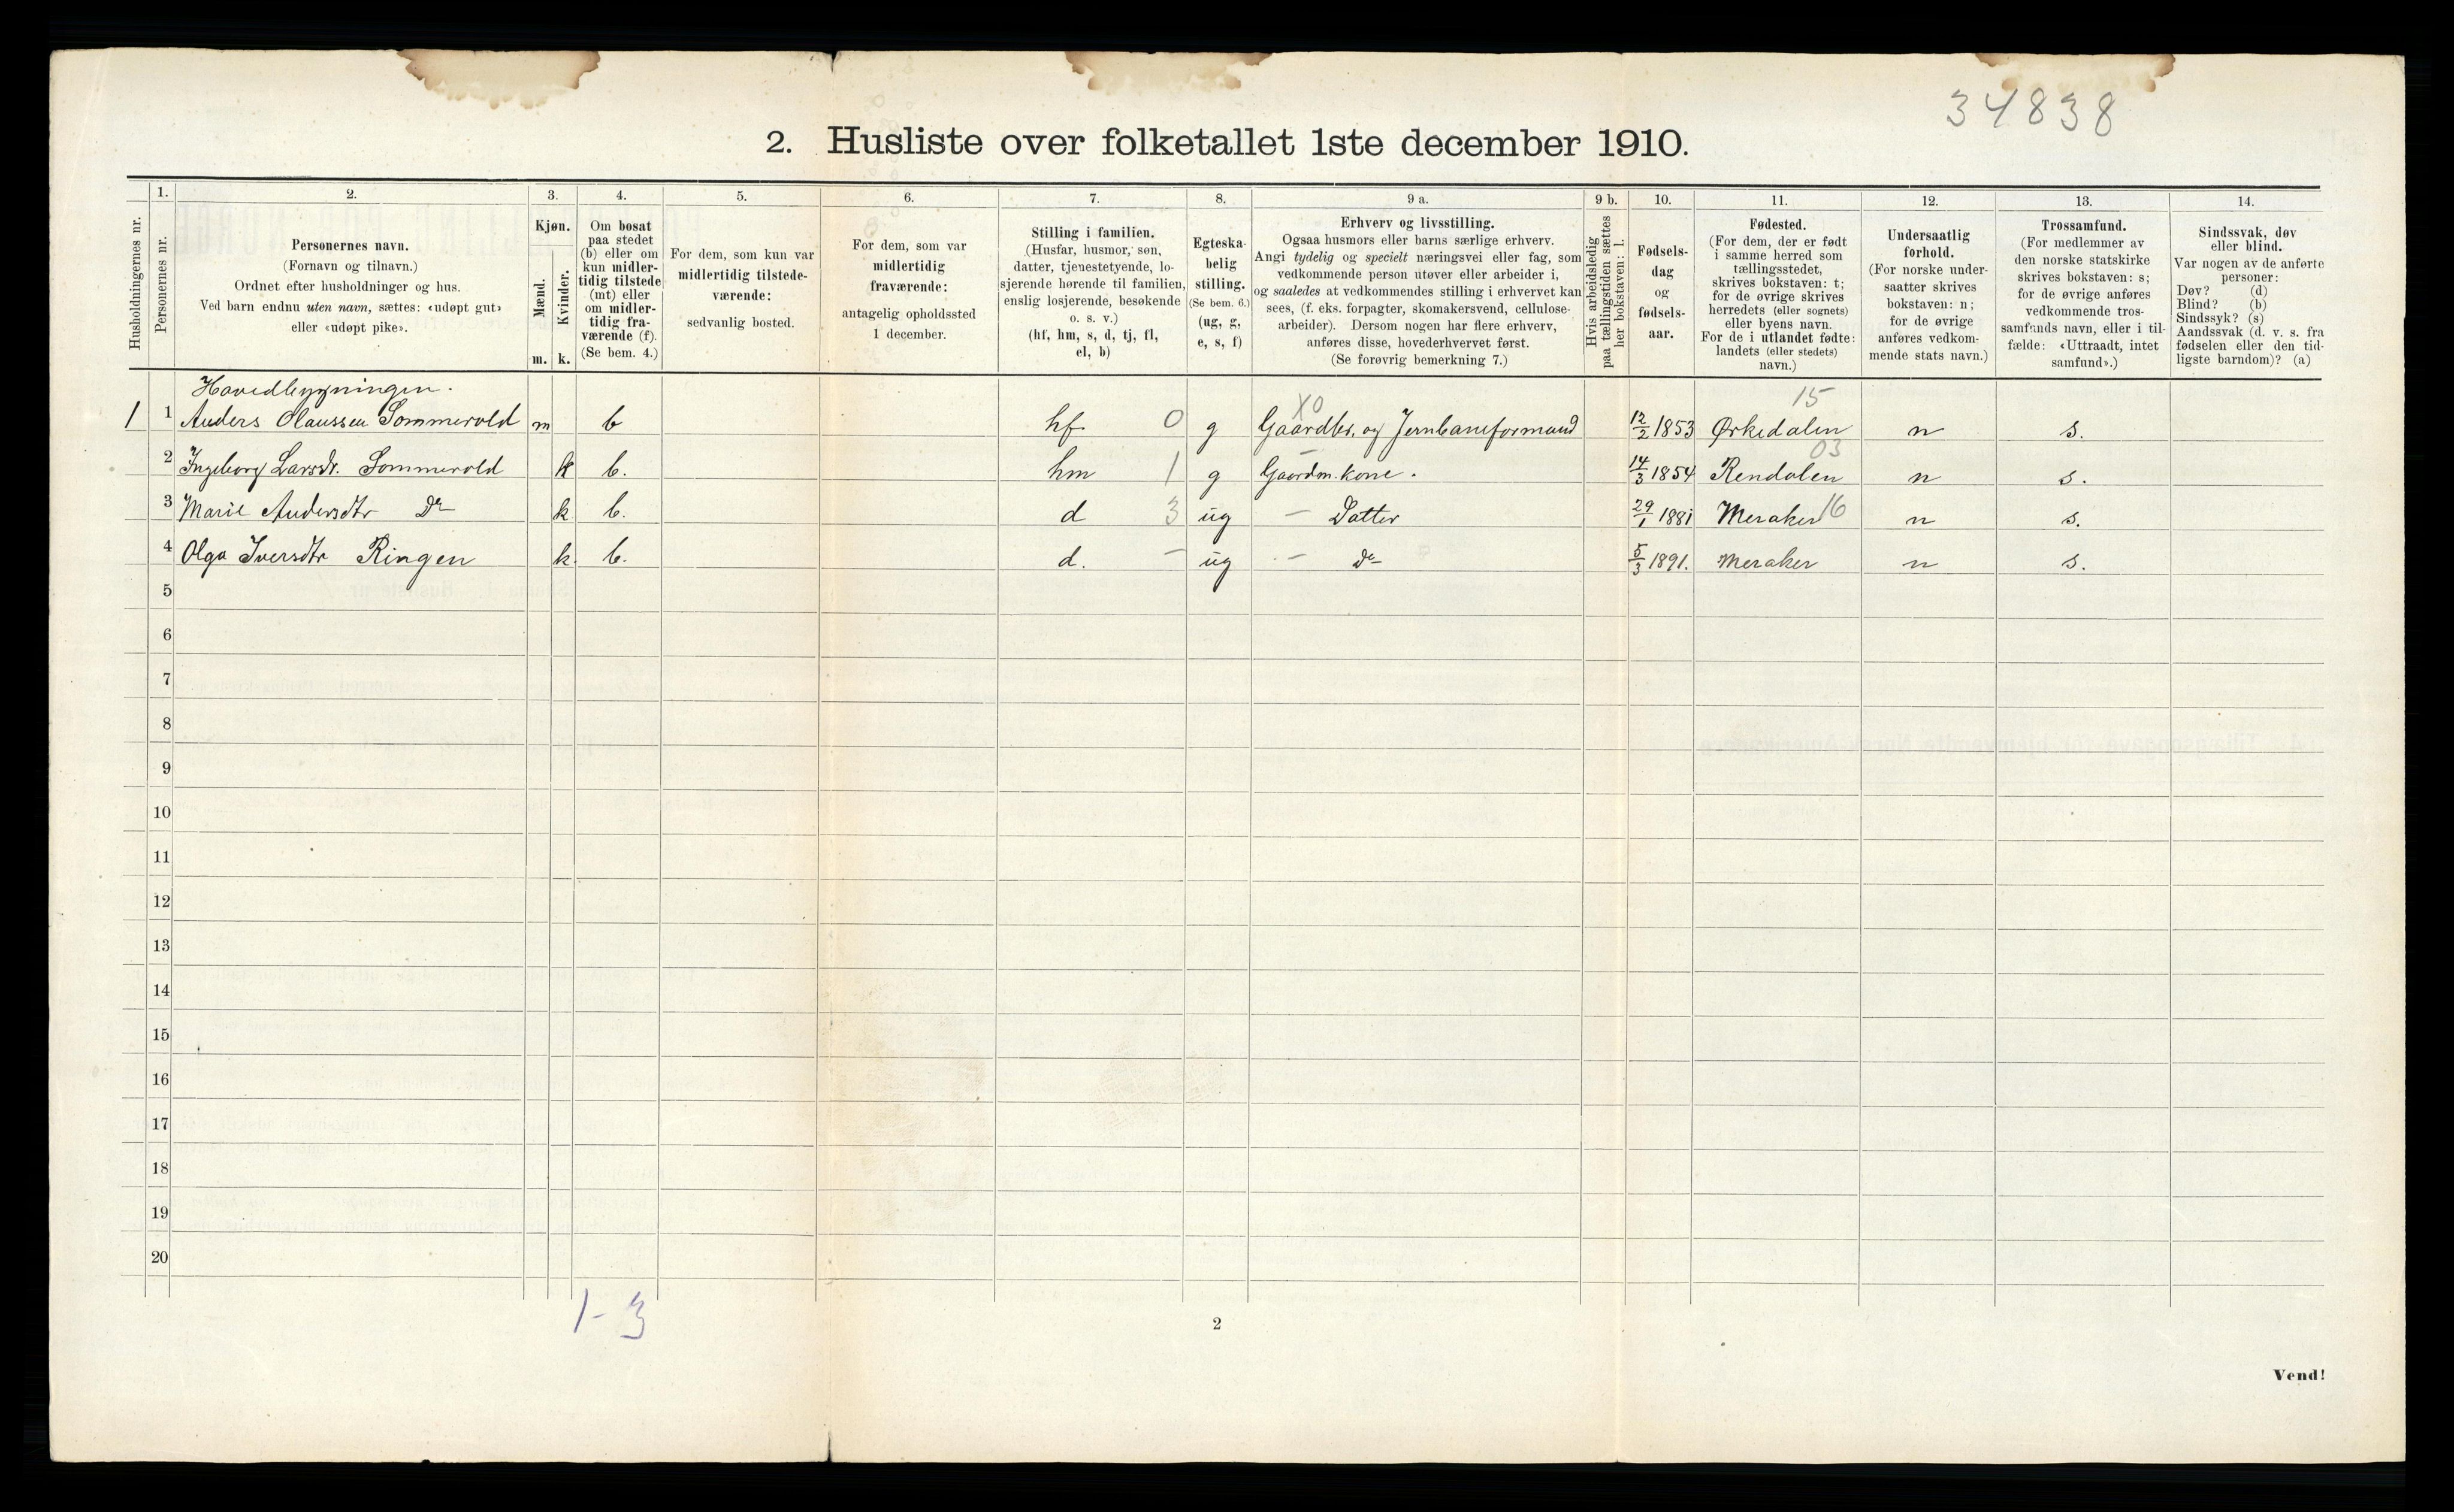 34838
2. Husliste over folketallet 1ste december 1910.
Husholdningernes nr.
1.
Personernes nr.
2.
Personernes navn.
(Fornavn og tilnavn.)
Ordnet efter husholdninger og hus.
Ved barn endnu uten navn, sættes: «udøpt gut»
eller «udøpt pike».
3.
Kjøn.
Mænd.
Kvinder.
m. k.
4.
Om bosat
paa stedet
(b) eller om
kun midler-
tidig tilstede
(mt) eller
om midler-
tidig fra-
værende (f).
(Se bem. 4.)
5.
For dem, som kun var
midlertidig tilstede-
værende:
sedvanlig bosted.
6.
For dem, som var
midlertidig
fraværende:
antagelig opholdssted
1 december.
7.
Stilling i familien.
(Husfar, husmor, søn,
datter, tjenestetyende, lo-
sjerende hørende til familien,
enslig losjerende, besøkende
o. s. v.)
(hf, hm, s, d, tj, fl,
el, b)
8.
Egteska-
belig
stilling.
(Se bem. 6.)
(ug, g,
e, s, f)
9 a.
Erhverv og livsstilling.
Ogsaa husmors eller barns særlige erhverv.
Angi tydelig og specielt næringsvei eller fag, som
vedkommende person utøver eller arbeider i,
og saaledes at vedkommendes stilling i erhvervet kan
sees, (f. eks. forpagter, skomakersvend, cellulose-
arbeider). Dersom nogen har flere erhverv,
anføres disse, hovederhvervet først.
(Se forøvrig bemerkning 7.)
9 b.
Hvis arbeidsledig
paa tællingstiden sættes
her bokstaven: l.
10.
Fødsels-
dag
og
fødsels-
aar.
11.
Fødested.
(For dem, der er født
i samme herred som
tællingsstedet,
skrives bokstaven: t;
for de øvrige skrives
herredets (eller sognets)
eller byens navn.
For de i utlandet fødte:
landets (eller stedets)
navn.)
12.
Undersaatlig
forhold.
(For norske under-
saatter skrives
bokstaven: n;
for de øvrige
anføres vedkom-
mende stats navn.)
13.
Trossamfund.
(For medlemmer av
den norske statskirke
skrives bokstaven: s;
for de øvrige anføres
vedkommende tros-
samfunds navn, eller i til-
fælde: «Uttraadt, intet
samfund».)
14.
Sindssvak, døv
eller blind.
Var nogen av de anførte
personer:
Døv? (d)
Blind? (b)
Sindssyk? (s)
Aandssvak (d. v. s. fra
fødselen eller den tid-
ligste barndom)? (a)
Hovedbygningen.
X0 15
1 1 Anders Olaussen Sommervold m b hf 0 g Gaardbr. og Jernbaneformand 12/2 1853 Ørkedalen n s.
03
2 Ingeborg Larsdr. Sommervold k b. hm 1 g Gaardm. kone. 14/3 1854 Rendalen n s.
3 Marie Andersdtr Do k b. d 3 ug — Datter 29/1 1881 Meraker 16 n s.
4 Olga Iversdtr Ringen k. b. d. — ug — do 5/3 1891. Meraker n s.
5
6
7
8
9
10
11
12
13
14
15
16
17
18
19
20
1-3
2
Vend!